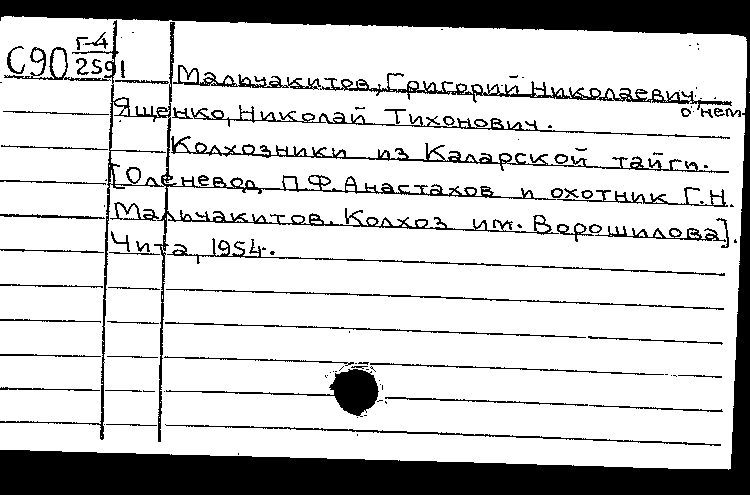 С90 Г-4
2591
Мальчакитов, Григорий Николаевич,
о нем
Ященко, Николай Тихонович.
Колхозники из Каларской тайги.
[Оленевод П.Ф. Анастахов и охотник Г.Н.
Мальчакитов. Колхоз им. Ворошилова].
Чита, 1954.